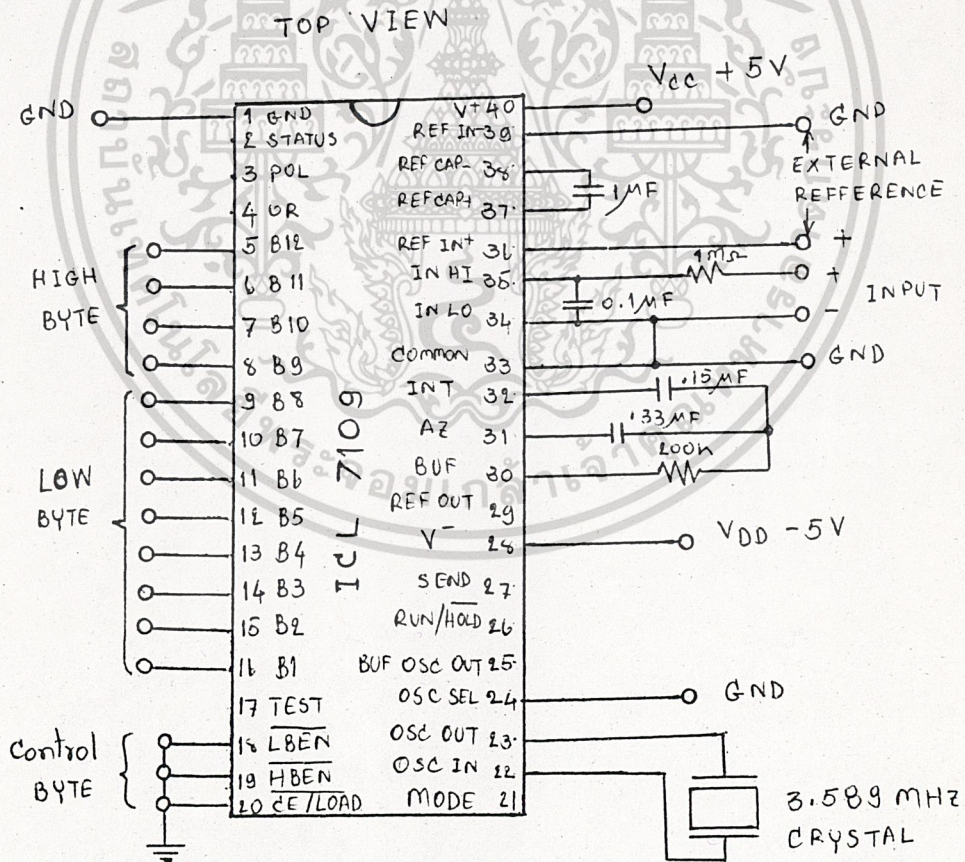 TOP VIEW
GND
1 GND
2 STATUS
3 POL
4 OR
5 B12
6 B11
7 B10
8 B9
9 B8
10 B7
11 B6
12 B5
13 B4
14 B3
15 B2
16 B1
17 TEST
18 LBEN
19 HBEN
20 CE/LOAD
HIGH
BYTE
LOW
BYTE
Control
BYTE
ICL 7109
V+ 40
REF IN- 39
REF CAP- 38
REF CAP+ 37
REF IN+ 36
IN HI 35
IN LO 34
COMMON 33
INT 32
AZ 31
BUF 30
REF OUT 29
V- 28
SEND 27
RUN/HOLD 26
BUF OSC OUT 25
OSC SEL 24
OSC OUT 23
OSC IN 22
MODE 21
Vcc +5V
GND
EXTERNAL
REFFERENCE
1µF
+
1MΩ
+
INPUT
0.1µF
-
GND
.15µF
.33µF
VDD -5V
GND
3.589 MHZ
CRYSTAL